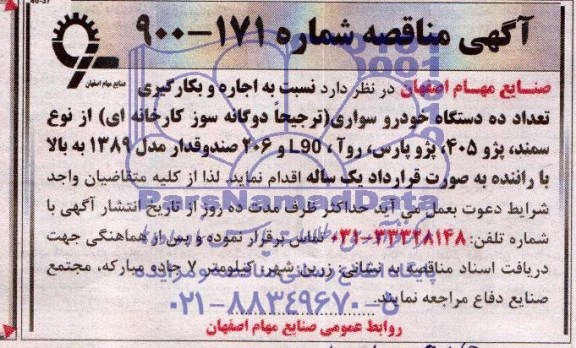 آگهی مناقصه شماره ۱۷۱-۹۰۰
صنایع مهام اصفهان
صنایع مهام اصفهان در نظر دارد نسبت به اجاره و بکارگیری
تعداد ده دستگاه خودرو سواری(ترجیحاً دوگانه سوز کارخانه ای) از نوع
سمند، پژو ۴۰۵، پژو پارس، روآ ، L90 و ۲۰۶ صندوقدار مدل ۱۳۸۹ به بالا
با راننده به صورت قرارداد یک ساله اقدام نماید. لذا از کلیه متقاضیان واجد
شرایط دعوت بعمل می آید حداکثر ظرف مدت ده روز از تاریخ انتشار آگهی با
شماره تلفن: ۳۳۳۲۸۱۴۸-۰۳۱ تماس برقرار نموده و پس از هماهنگی جهت
دریافت اسناد مناقصه به نشانی: زرین شهر، کیلومتر ۷ جاده مبارکه، مجتمع
صنایع دفاع مراجعه نمایند.
روابط عمومی صنایع مهام اصفهان
ParsNamadData
پایگاه اطلاع رسانی مناقصه و مزایده
۰۲۱-۸۸۳۴۹۶۷۰-۵